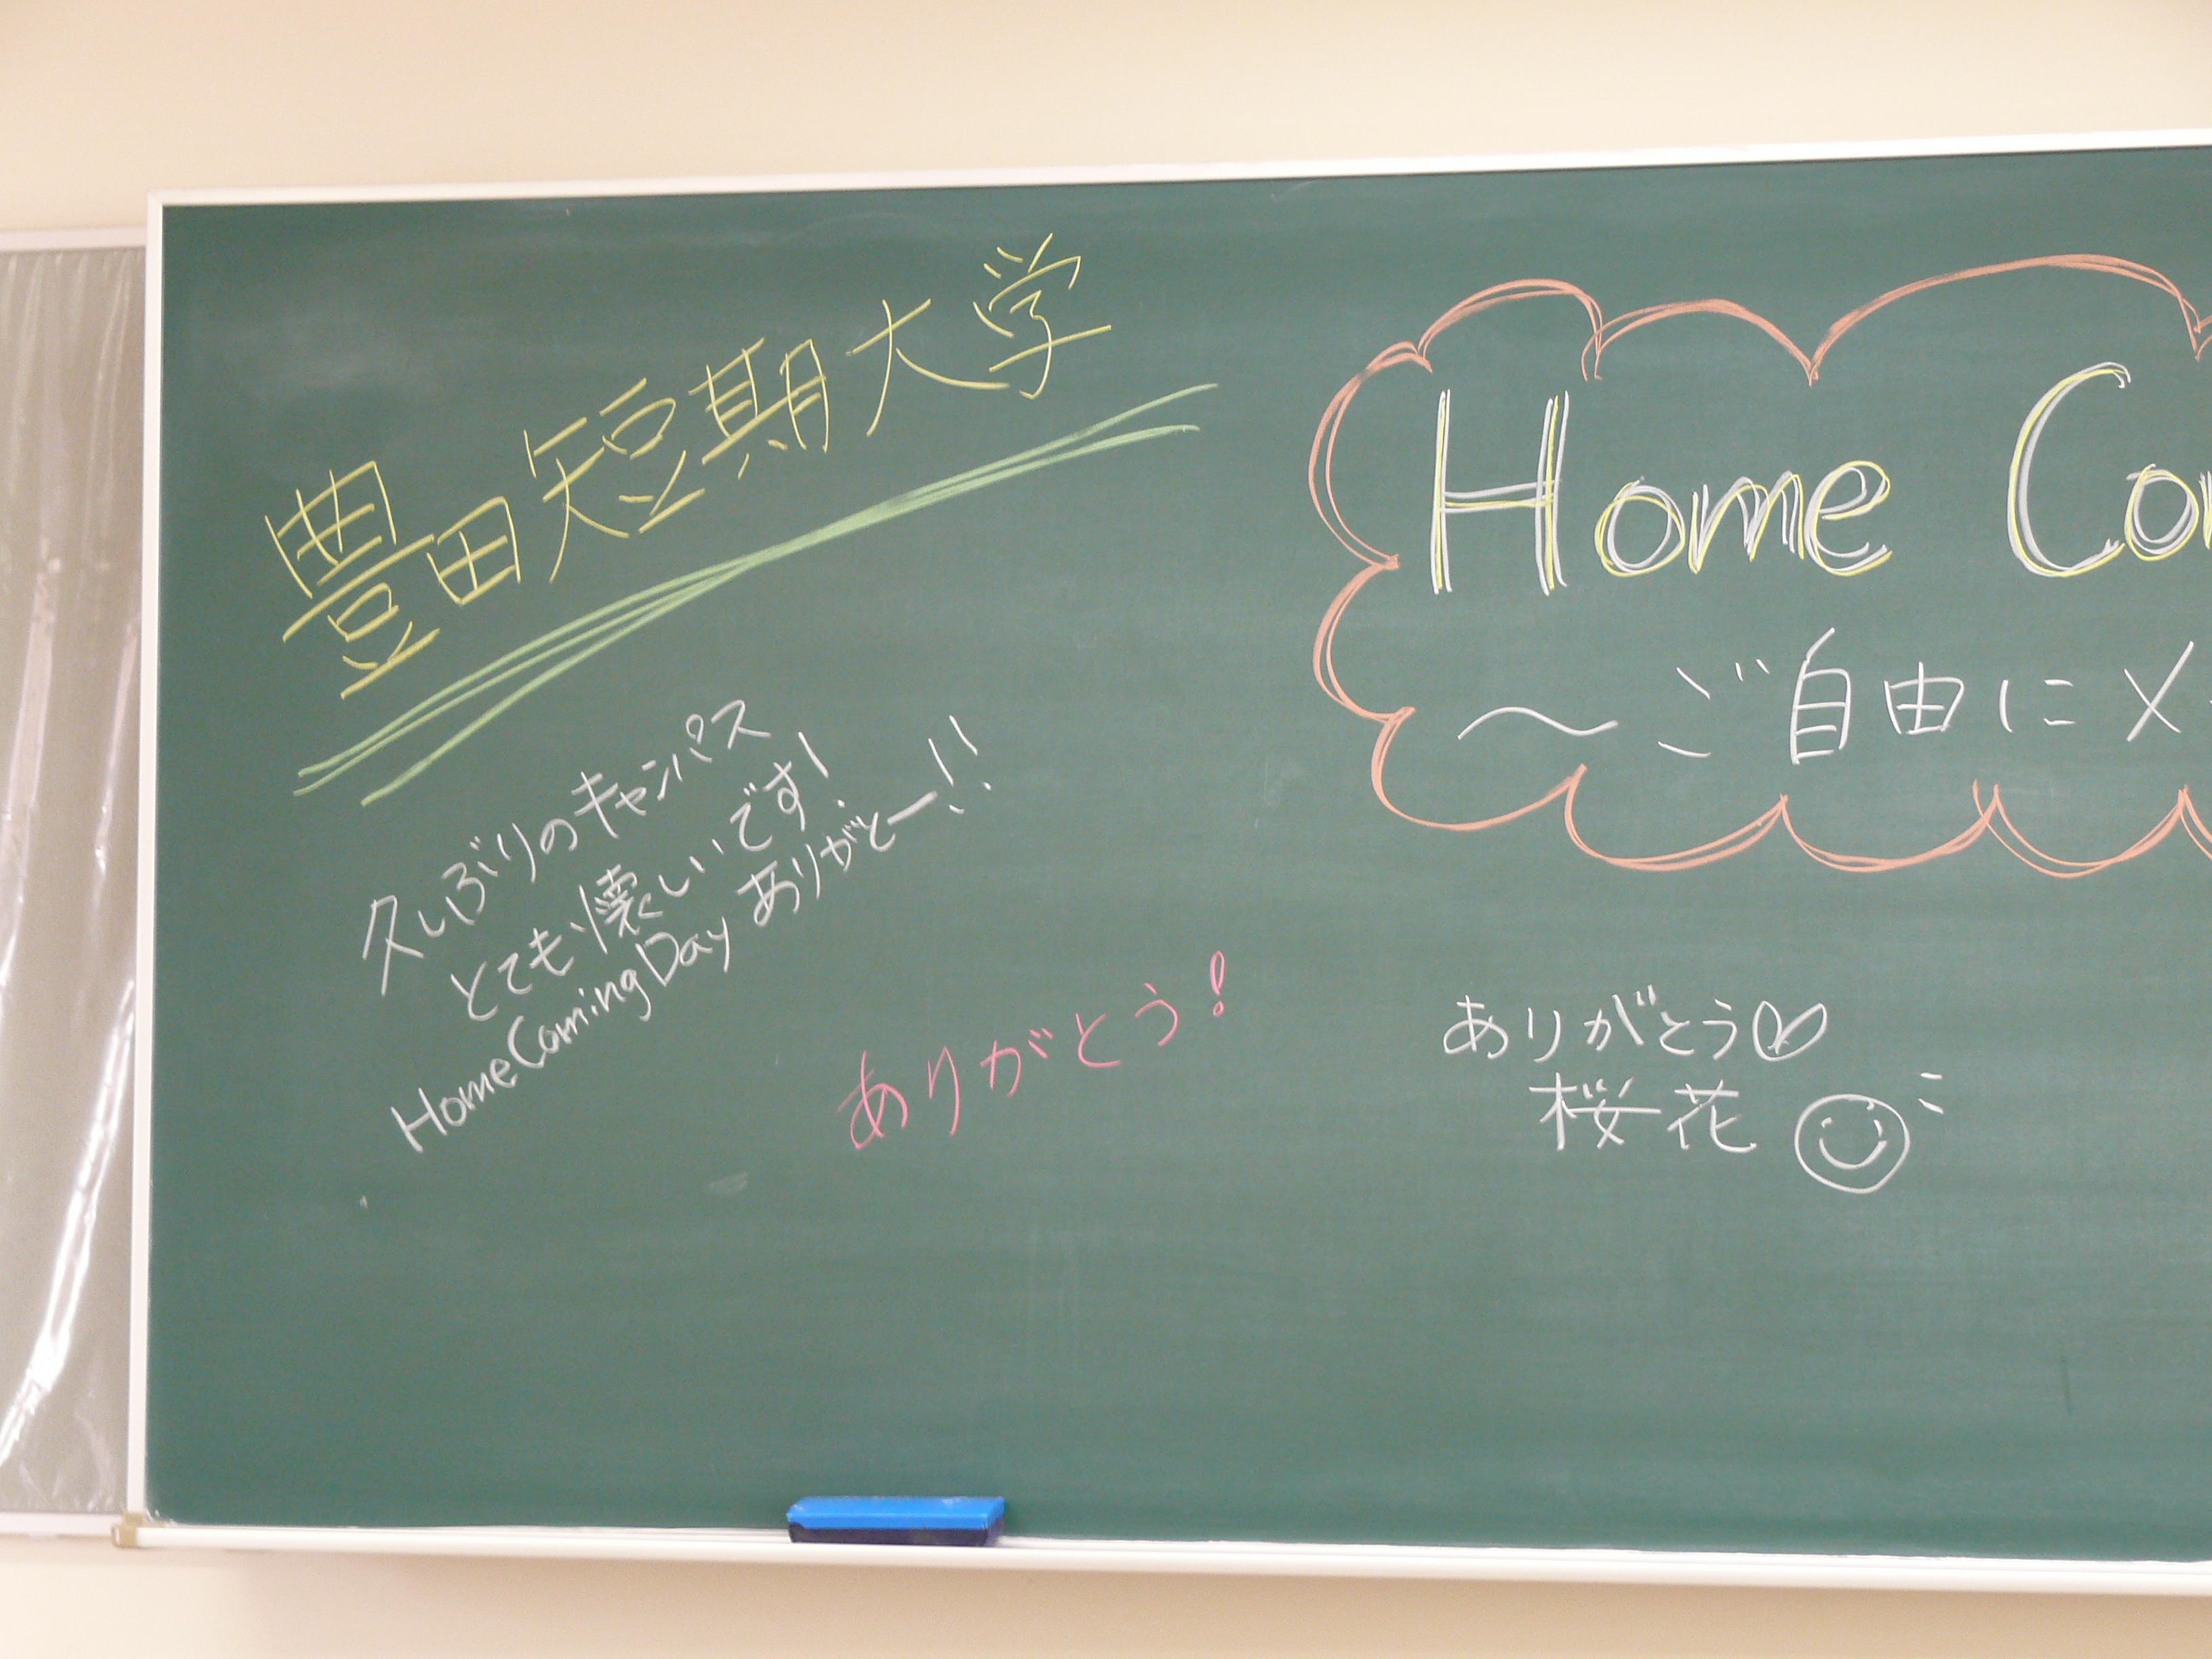 豊田短期大学
久しぶりのキャンパス
とても懐しいです!
HomeComingDay ありがとー!!
ありがとう!
Home Co
〜ご自由にメ
ありがとう♡
桜花